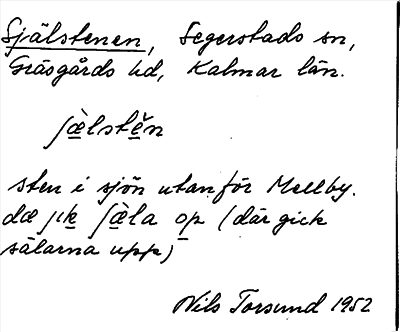 Själstenen, Segerstads sn,
Gräsgårds hd, Kalmar län.
ʃæ̀lstěn
sten i sjön utanför Mellby.
dæ jık ʃæ̀la op (där gick
sälarna upp)
Nils Torsund 1952